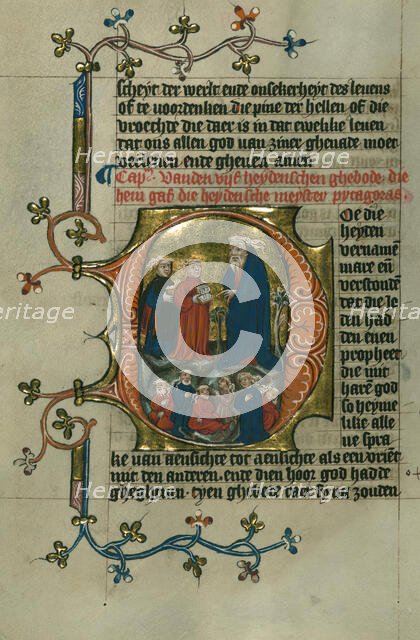 scheyt der werlt ende onsekerheyt des leuens
oft te voordenken die pine der hellen of die
vroechte die daer is in dat ewelike leuen
dat ons allen god van ziner ghenade moet
verlienen ende gheuen amen
Cap. Vanden vijf heydenschen ghebode die
hem gaf die heydensche meyster pytagoras
Oe die
heyten
vername
mare en̄
verstonde
dat die Ie
den had
den enen
propheet
die mit
haren god
so heyme
like alle
spra
ke van aensichte tot aensichte als een vrient
mit den anderen ende dien hoor god hadde
ghegheuen zouden
Heritage
Images
Heritage
Images
Heritage
Images
Heritage
Images